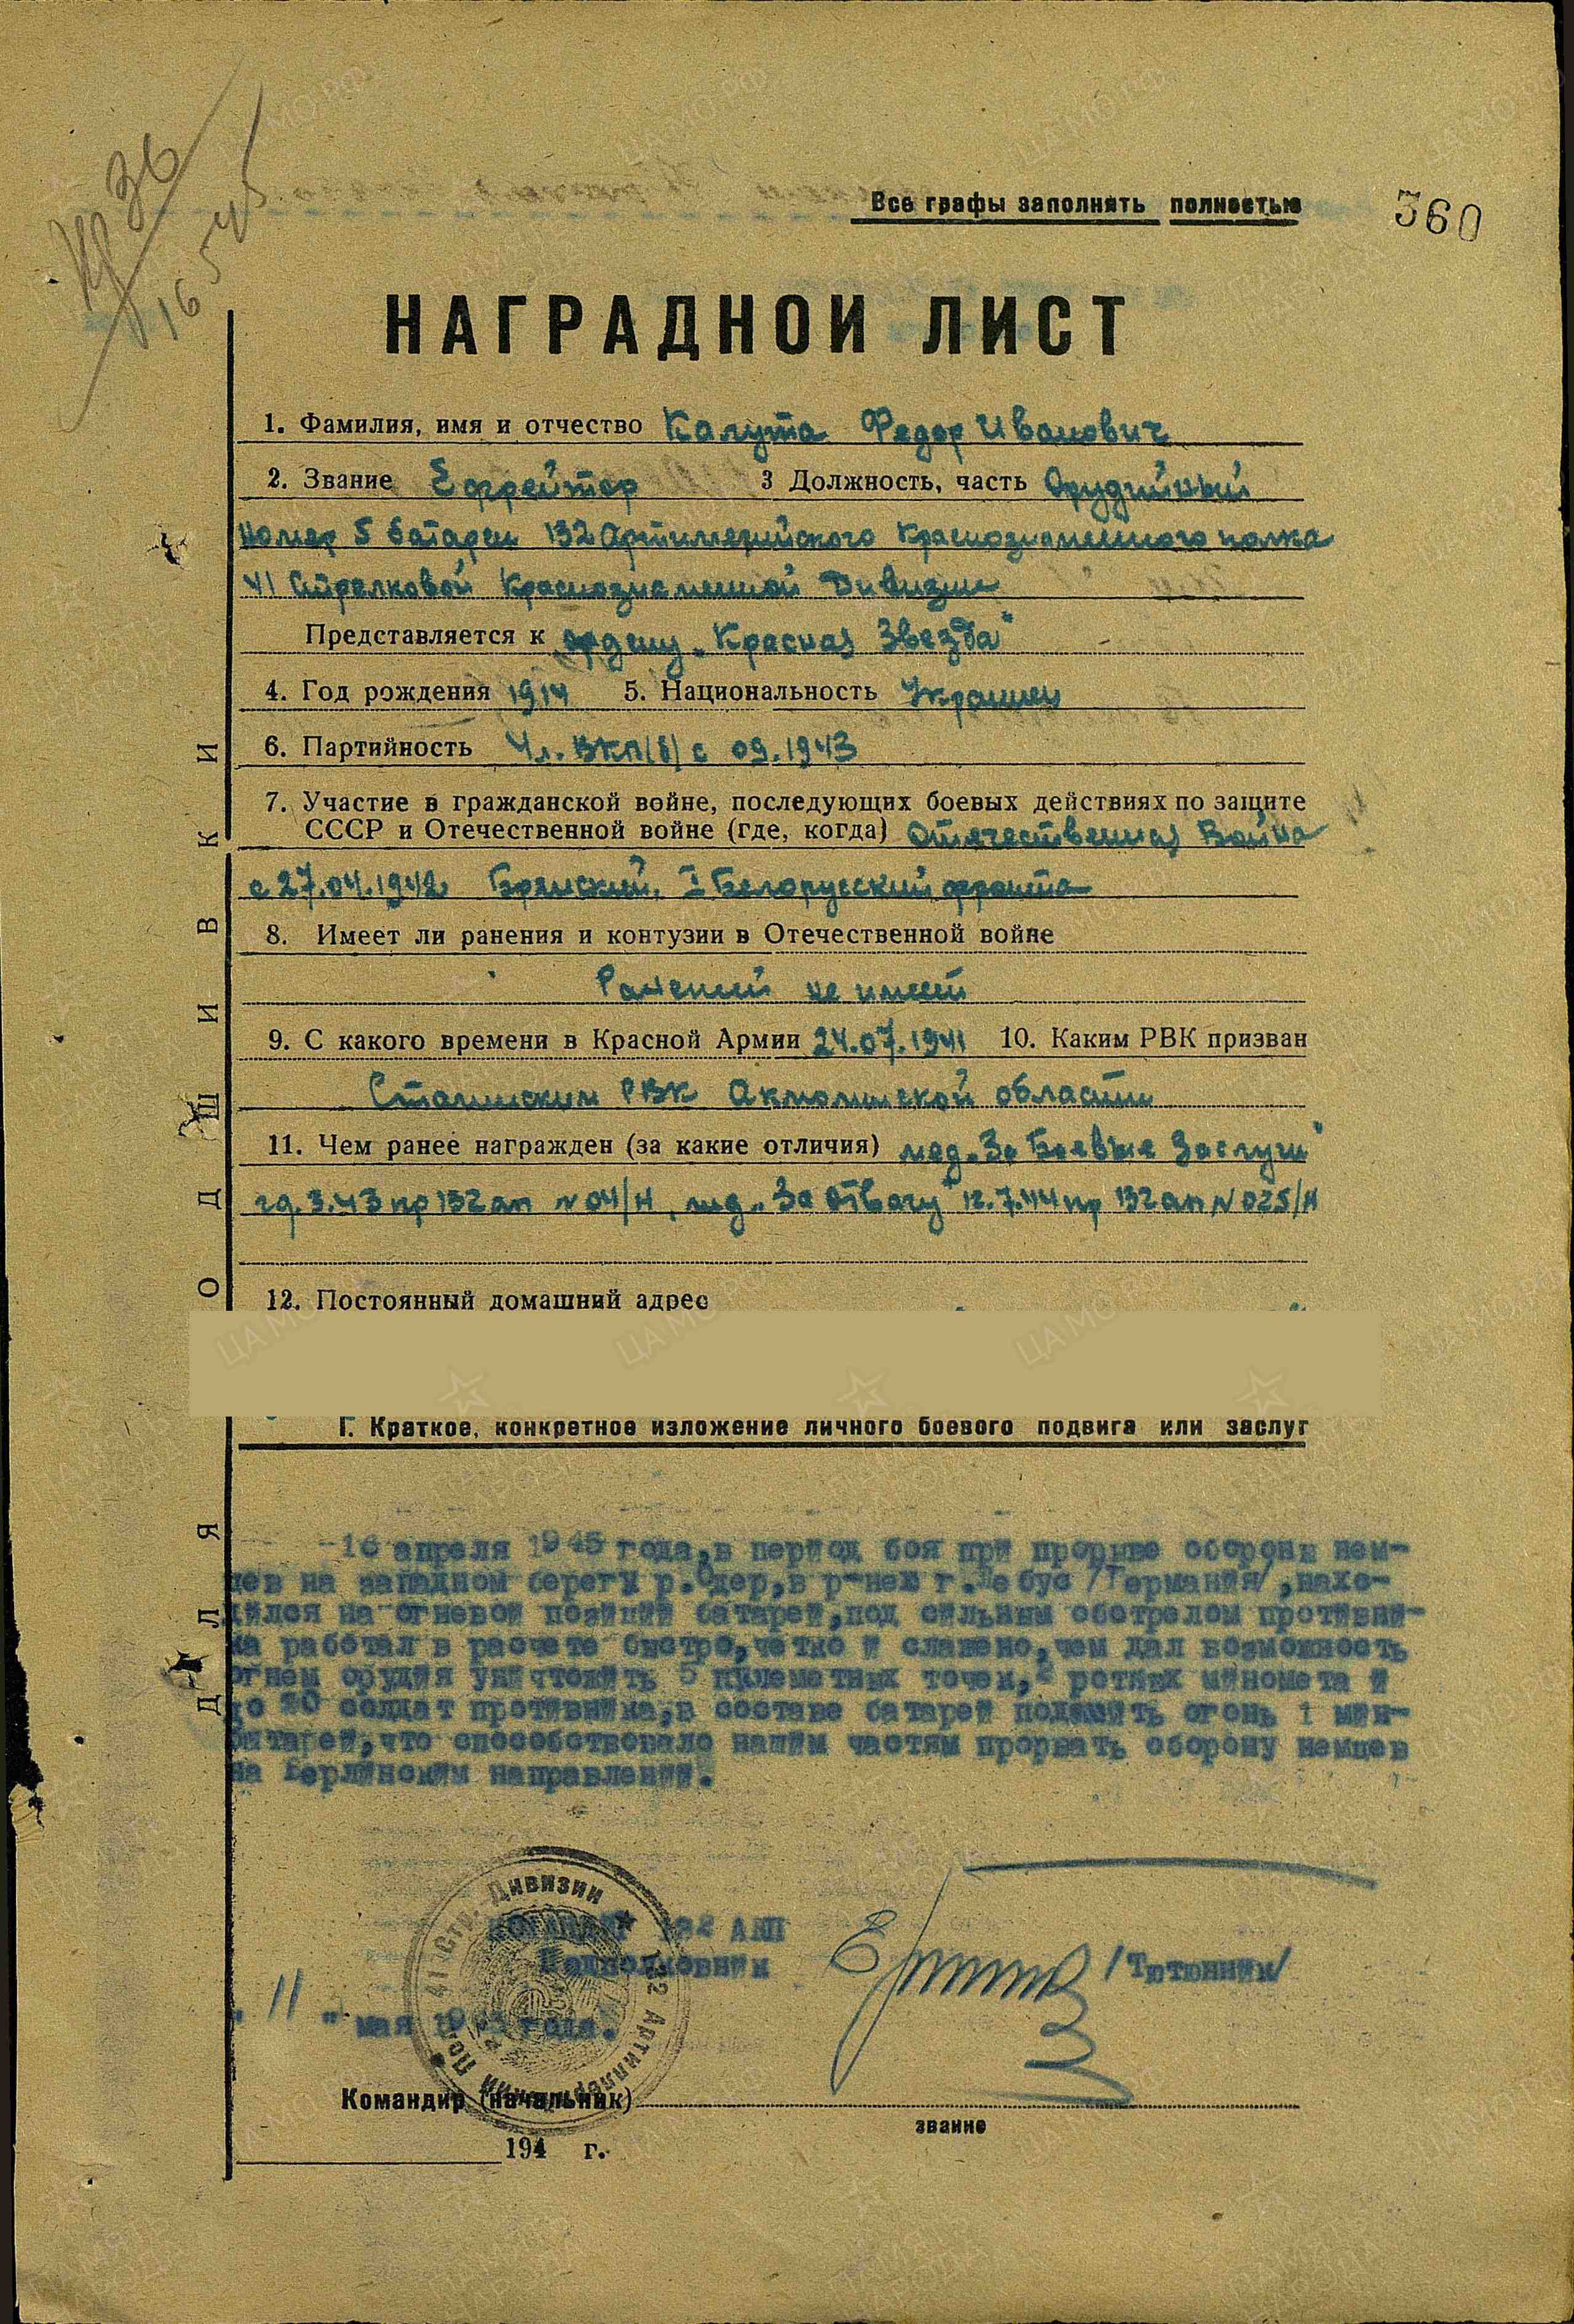 Кр 36
16 5 45
Все графы заполнять полностью
360
НАГРАДНОЙ ЛИСТ
1. Фамилия, имя и отчество Калута Федор Иванович
2. Звание Ефрейтор 3 Должность, часть Орудийный
номер 5 батареи 132 Артиллерийского Краснознаменного полка
41 Стрелковой Краснознаменной Дивизии
Представляется к ордену „Красная Звезда"
4. Год рождения 1914 5. Национальность Украинец
6. Партийность Чл. ВКП(б) с 09.1943
7. Участие в гражданской войне, последующих боевых действиях по защите
СССР и Отечественной войне (где, когда) Отечественная Война
с 27.04.1942 Брянский, I Белорусский фронта
8. Имеет ли ранения и контузии в Отечественной войне
Ранений не имеет
9. С какого времени в Красной Армии 24.07.1941 10. Каким РВК призван
Сталинским РВК Акмолинской области
11. Чем ранее награжден (за какие отличия) мед. „За Боевые Заслуги"
3.43 пр 132 ап № 04/н, мед. „За Отвагу" 12.7.44 пр 132 ап № 025/н
12. Постоянный домашний адрес
I. Краткое, конкретное изложение личного боевого подвига или заслуг
16 апреля 1945 года, в период боя при прорыве обороны нем-
цев на западном берегу р.Одер, в р-нех г.Лебус /Германия/, нахо-
дился на огневой позиции батареи, под сильным обстрелом противни-
ка работал в расчете быстро, четко и слажено, чем дал возможность
огнем орудия уничтожить 5 пулеметных точек, 2 ротных миномета и
до 20 солдат противника, в составе батареи подавить огонь 1 мин-
батареи, что способствовало нашим частям прорвать оборону немцев
на Берлинском направлении.
КОМАНДИР 132 АКП
Подполковник /Тютюнник/
" 11 " мая 1945 года.
41 Стр. Дивизии 132 Артиллерийский Полк
Командир (начальник)
звание
194 г.
ДЛЯ ПОДШИВКИ